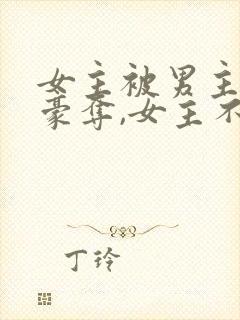 女主被男主
豪夺,女主不
丁玲